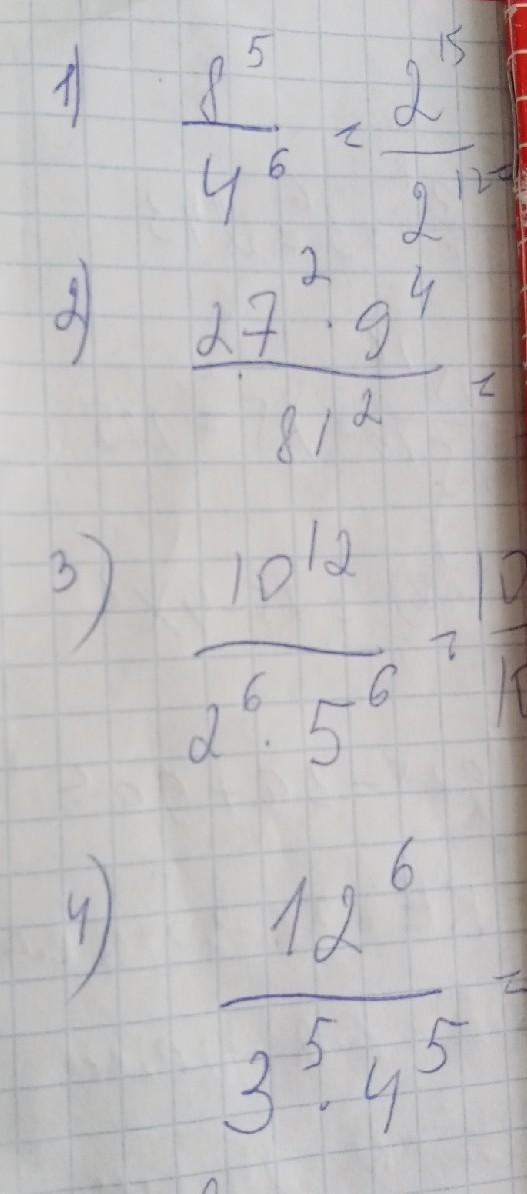 1) 8^5 / 4^6 = 2^15 / 2^12
2) 27^2 · 9^4 / 81^2 =
3) 10^12 / 2^6 · 5^6 = 10
4) 12^6 / 3^5 · 4^5 =